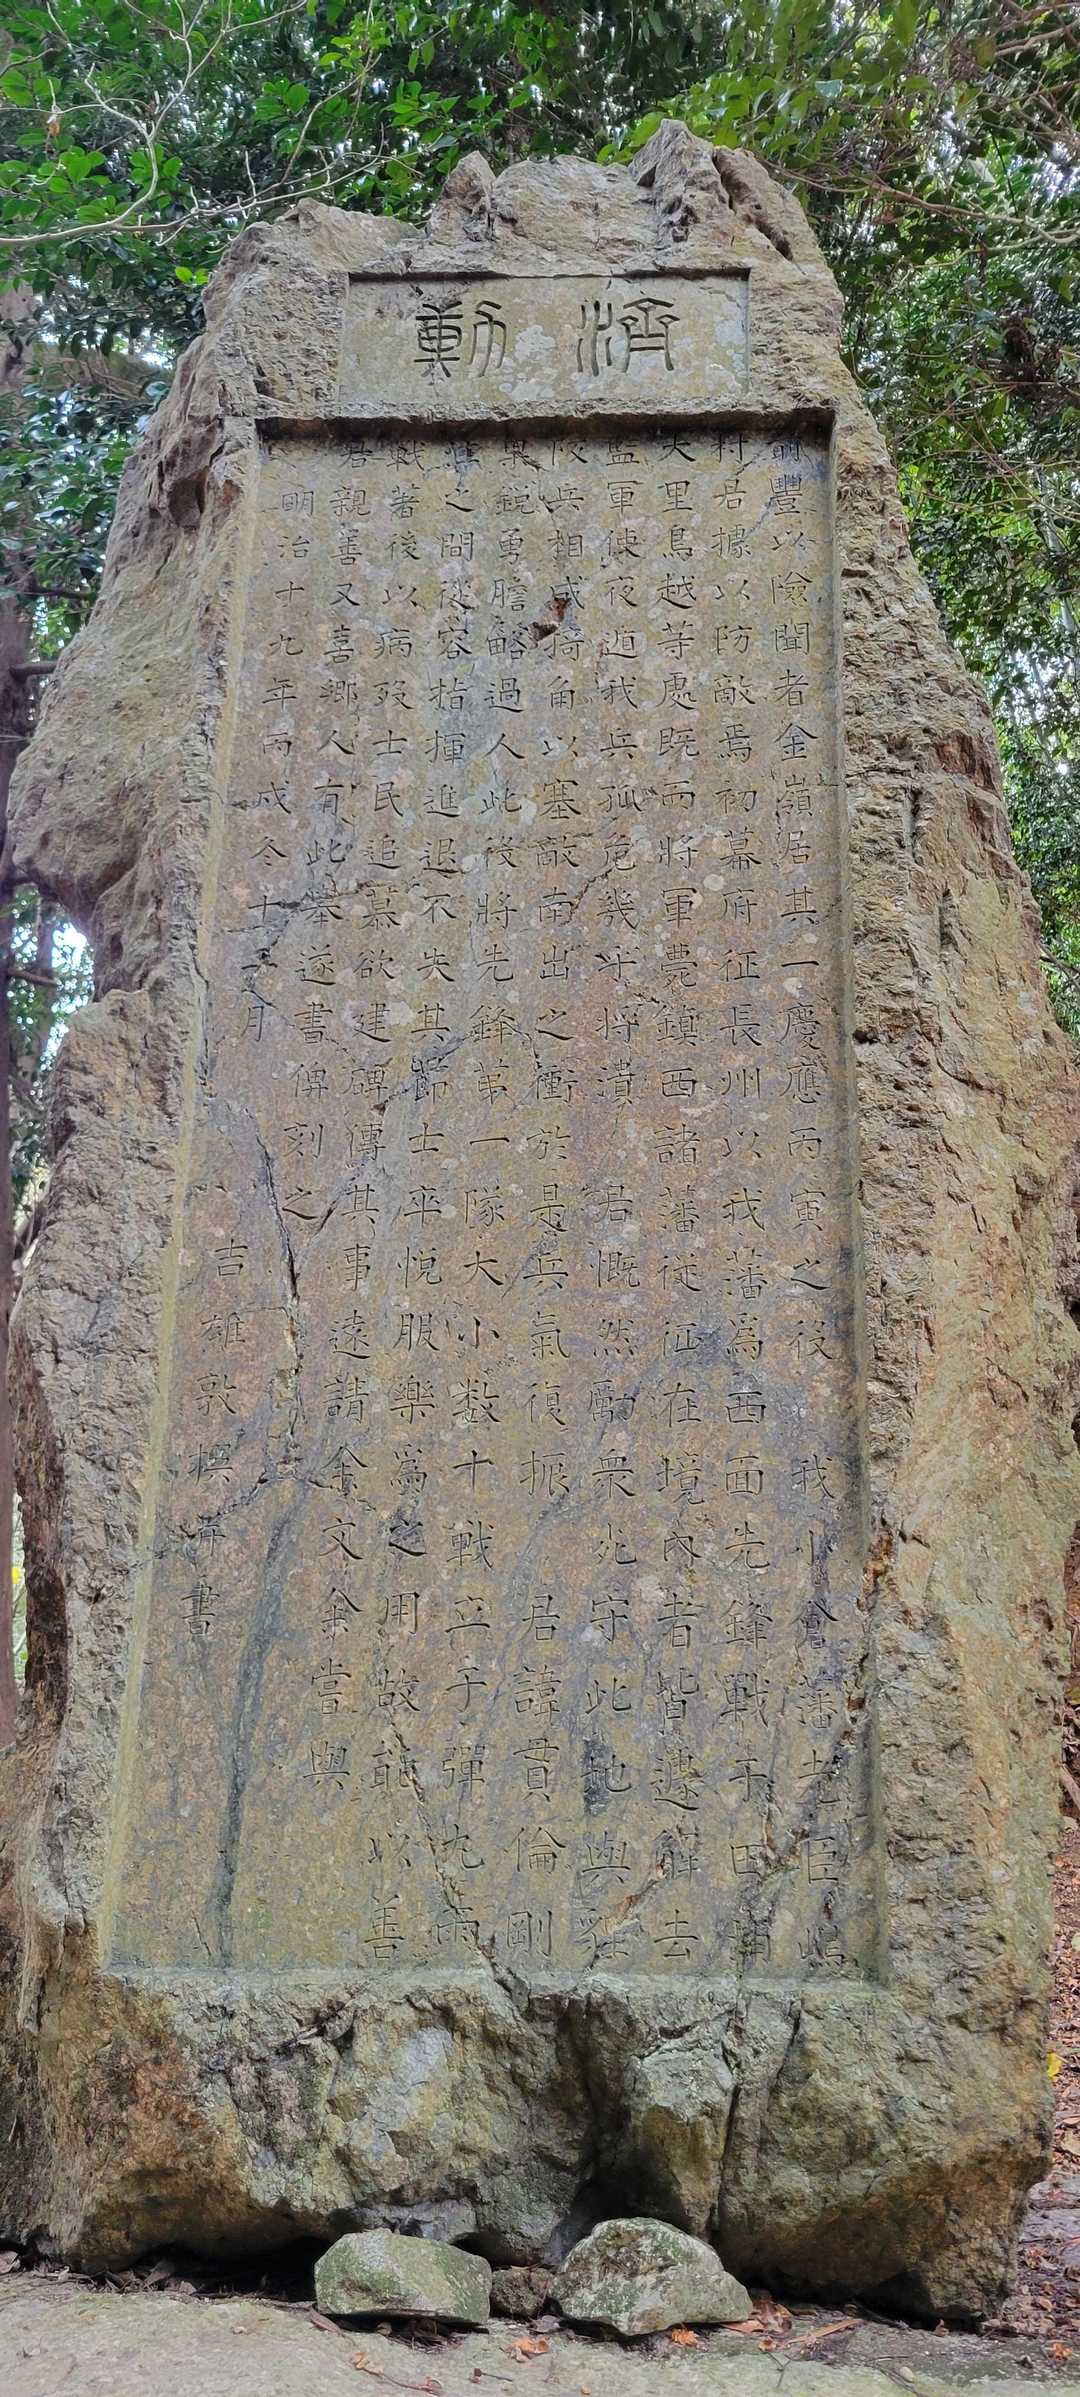 濟勳
前豐以險聞者金嶺居其一慶應丙寅之役　我小倉藩老臣嶋
村君據以防敵焉初幕府征長州以我藩爲西面先鋒戰于田浦
大里鳥越等處既而將軍薨鎮西諸藩從征在境内者皆遽解去
監軍使夜遁我兵孤危幾乎将潰　君慨然勵衆死守此地與
隊兵相成掎角以塞敵南出之衝於是兵氣復振　君諱貫倫剛
果鋭勇膽略過人此役將先鋒第一隊大小数十戦立于彈丸雨
之間從容指揮進退不失其節士卒悦服樂爲之用故能以善
戦著後以病歿士民追慕欲建碑傳其事遠請余文余嘗與
君親善又喜郷人有此擧遂書俾刻之
明治十九年丙戌冬十二月
吉雄敦撰并書